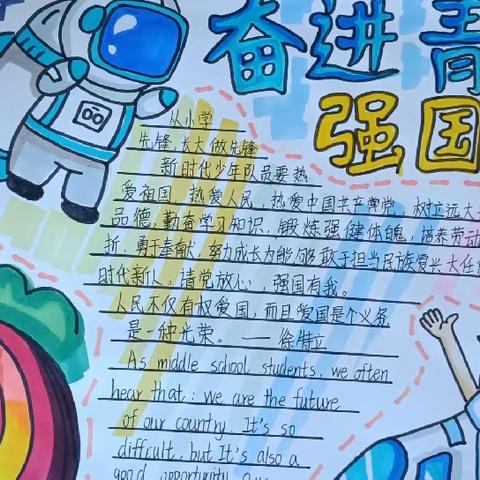 奋进青
强国
从小学
先锋,长大做先锋
新时代少年队员要热
爱祖国,热爱人民,热爱中国共产党,树立远大
品德,勤奋学习知识,锻炼强健体魄,培养劳动
折、勇于奉献,努力成长为能够敢于担当民族复兴大任
时代新人。请党放心,强国有我。
人民不仅有权爱国,而且爱国是个义务
是一种光荣。——徐特立
As middle school students, we often
hear that: we are the future
of our country. It's so
difficult, but It's also a
good opportunity